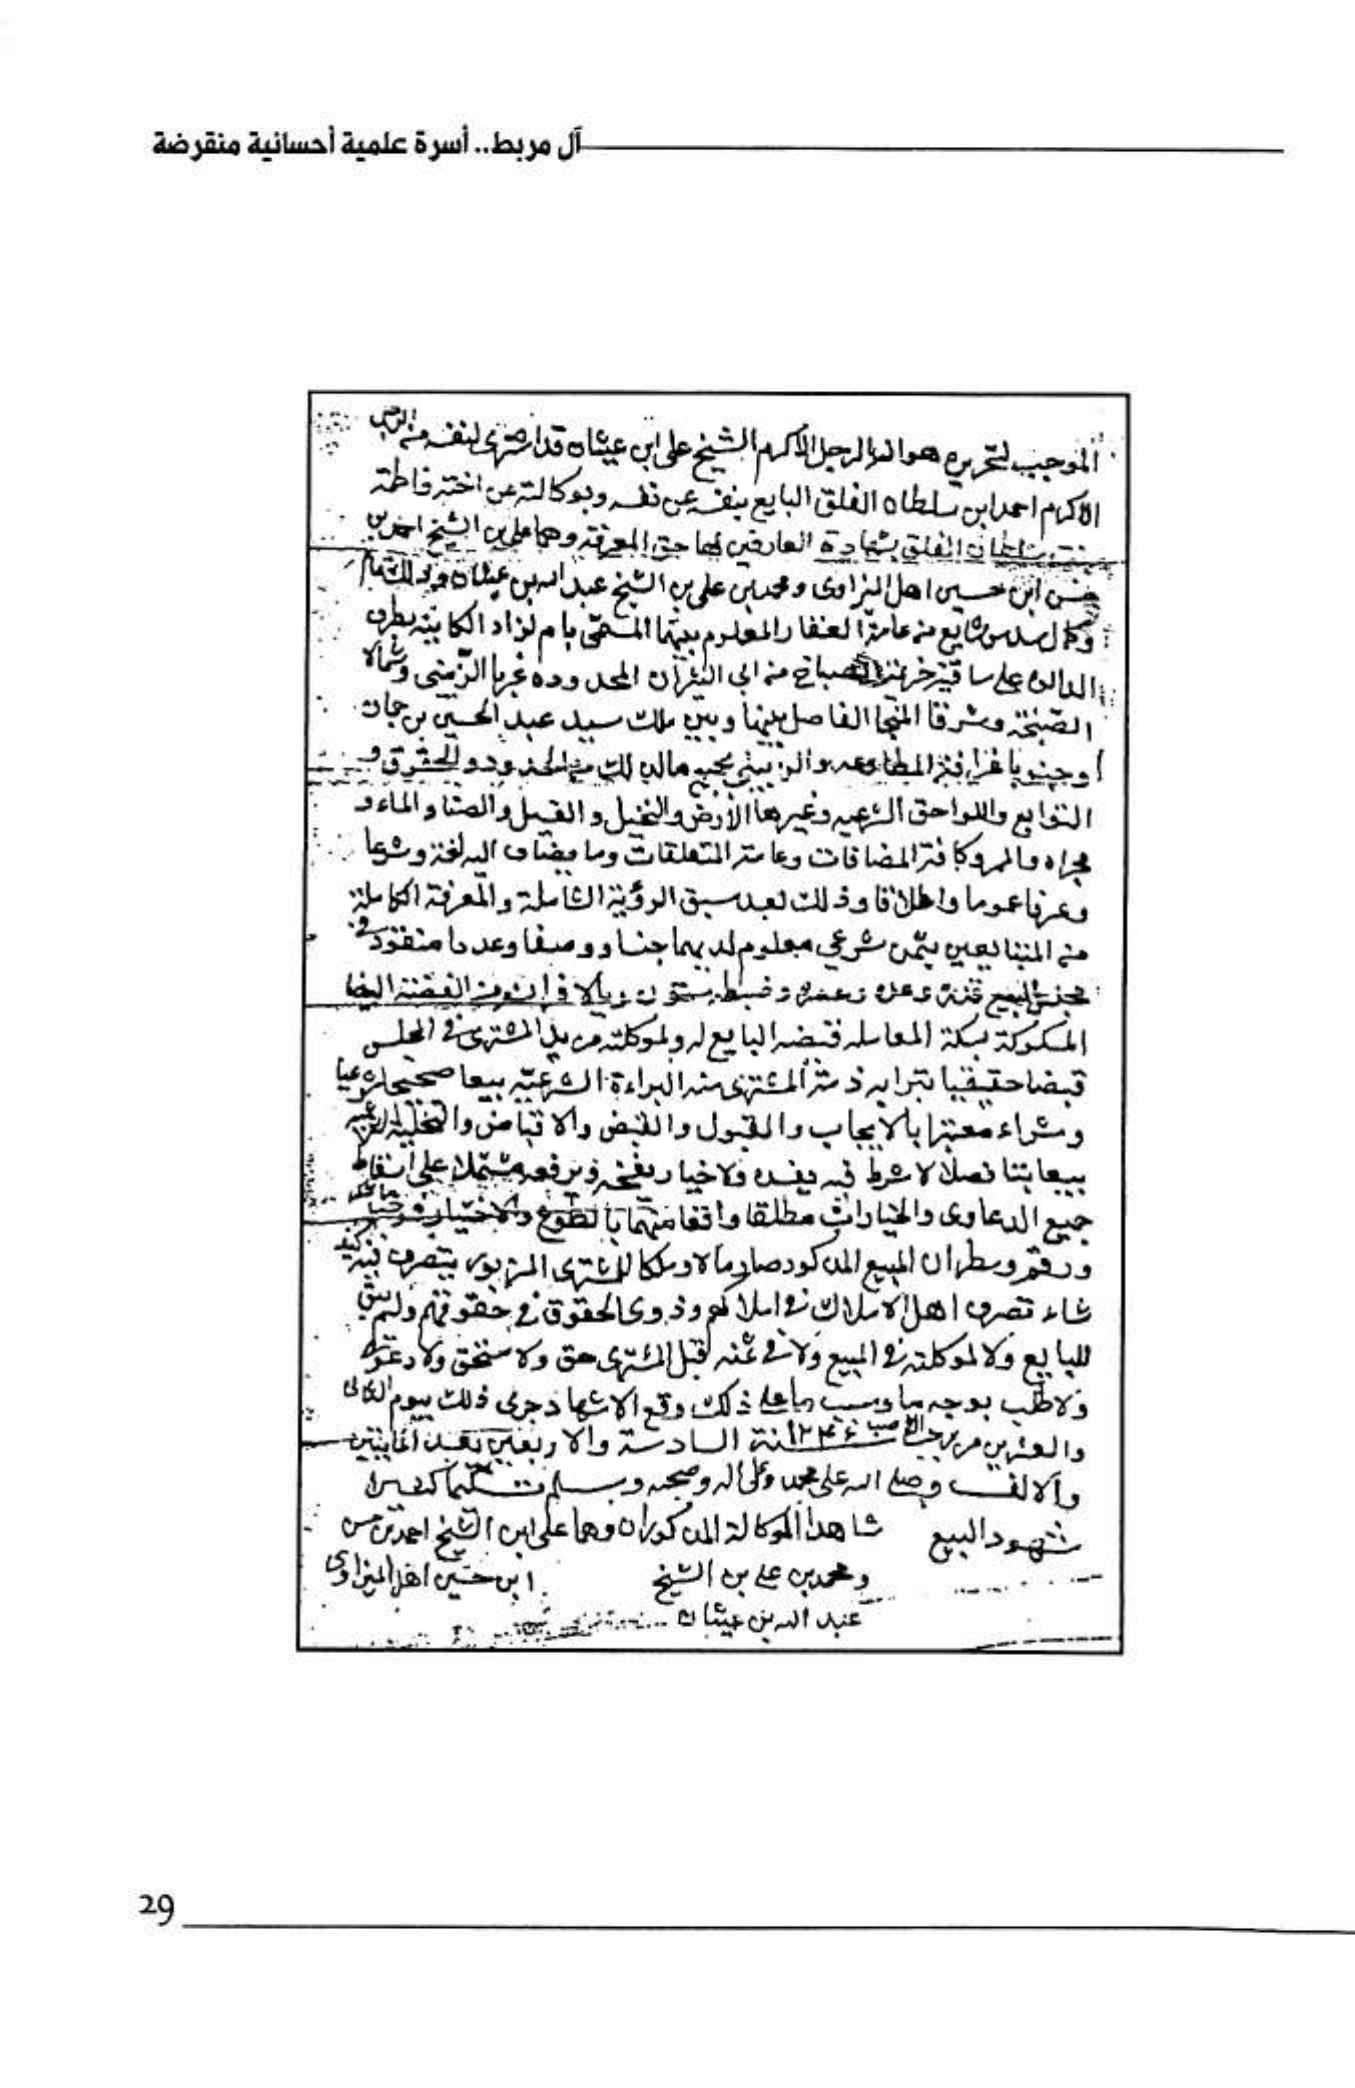 آل مربط.. أسرة علمية أحسائية منقرضة
الموجب لتحريره هو ان الرجل الأكرم الشيخ علي ابن عيثان قد اشترى لنفسه من الرجل
الاكرم احمد ابن سلطان الفلق البايع بنفسه عن نفسه وبوكالته عن اخته فاطمة
بنت سلطان الفلق بشهادة العارفين لها حق المعرفة وهما علي بن الشيخ احمد بن
حسن ابن حسين اهل المزاوى ومحمد بن علي بن الشيخ عبد الله بن عيثان وذلك تمام
وكمال سدس شايع من عامة العقار المعلوم بينهما المسمى بام لزاد الكاينه بطرف
على ساقية المحدوده غربا وشمالا
وشرقا المنجا الفاصل بينها وبين ملك سيد عبد الحسين بن
وجنوبا بجميع مالذلك من الحدود والحقوق و
التوابع واللواحق الشرعيه وغيرها الأرض والنخيل و والماء و
مجراه والممر وكافة المضافات وعامة المتعلقات وما يضاف اليه لغة وشرعا
وعرفا عموما واطلاقا وذلك بعد سبق الرؤية الشاملة والمعرفة الكاملة
من المتبايعين بثمن شرعي معلوم لديهما جنسا ووصفا وعددا منقود في
مجلس البيع قدره وعده وضبطه ستون ريالا الفضة البيضا
المسكوكة بسكة المعامله قبضه البايع له ولموكلته من يد المشترى في المجلس
قبضا حقيقيا تبرا به ذمة المشترى منه البراءة الشرعيه بيعا صحيحا شرعيا
وشراء معتبرا بالايجاب والقبول والقبض والاقباض والتخلية
بيعا بتا فصلا لا شرط فيه يفسده ولا خيار يفسخه ويرفعه مشتملا على اسقاط
جميع الدعاوى والخيارات مطلقا واقعا منهما بالطوع والاختيار
ورقم وسطر ان المبيع المذكور صار مالا وملكا للمشترى المزبور يتصرف فيه كيف
شاء تصرف اهل الاملاك في املاكهم وذوى الحقوق في حقوقهم ولم يبق
للبايع ولا لموكلته في المبيع ولا في ثمنه قبل المشترى حق ولا مستحق ولا دعوى
ولا طلب بوجه ما وسبب ما على ذلك وقع الاشهاد جرى ذلك بيوم الثاني
والعشرين من رجب ١٢٤٦ سنة السادسة والاربعين بعد المايتين
والالف وصلى الله على محمد وعلى اله وصحبه وسلم تسليما كثيرا
شهود البيع شاهدا الوكالة المذكوران وهما علي ابن الشيخ احمد بن حسن
ومحمد بن علي بن الشيخ ابن حسين اهل المزاوى
عبد الله بن عيثان
29